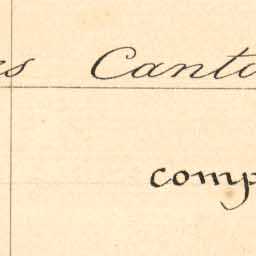 es Canto
comp